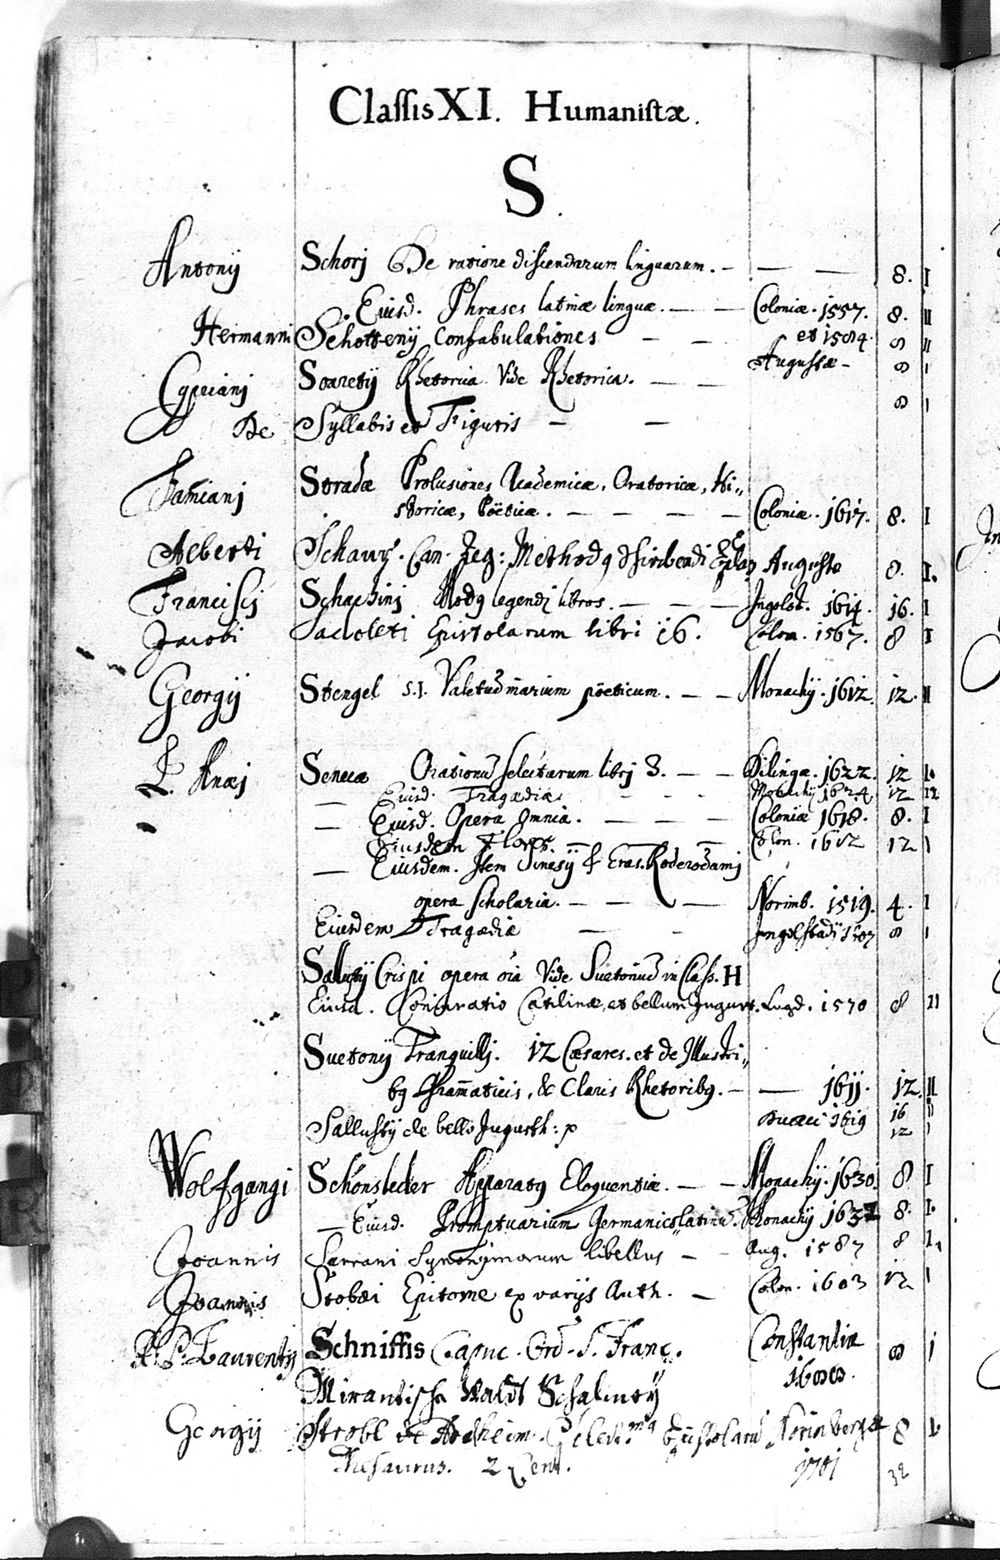 Classis XI. Humanistæ.
S.
Antonij Schorj De ratione discendarum linguarum. – — — 8. I
Eiusd. Phrases latinæ linguæ. — — Coloniæ. 1557. 8. II
Hermanni Schottenij Confabulationes — — et 1584. 8 II
Cypriani Soaretij Rhetorica Vide Rhetorica. — — Augustæ – 8 I
De Syllabis et Figuris — — 8 I
Famiani Stradæ Prolusiones Academicæ, Oratoricæ, Hi„
storicæ, Pöeticæ. — — — — Coloniæ. 1617. 8. I
Alberti Can. Reg: Methodq Augustæ 8. I.
Francisij Schachinj Modq legendi libros. — — — Ingolst. 1614. 16. I
Jacobi Sadoleti Epistolarum libri 16. Colon. 1567. 8 I
Georgij Stengel S.I. Valetudinarium pöeticum. — — Monachij. 1612. 12. II
L. Anæj Senecæ Orationū selectarum librj 3. — — Dilingæ. 1622. 12 I.
— Eiusd. Tragædiæ. — — — Monachij 1624 12 II
— Eiusd. Opera Omnia. — — — Coloniæ 1618. 8. I
Eiusdem Flores. — — — Colon. 1612 12 I
— Eiusdem. Item Sinesij & Eras. Roderodamj
opera scholaria. — — — Norimb. 1519. 4. I
Eiusdem Tragædiæ — — Ingolstadij 8 I
Sallustij Crispi opera oīa Vide Suetoniū in Class. H
Eiusd. Coniuratio Catilinæ, et bellum Jugurt. Lugd. 1570 8 II
Suetonij Tranquillj. 12 Cæsares. et de Illustri„
bq Gram̄aticis, & Claris Rhetoribq. – — 1611. 12. II
Sallustij de bello Jugurth: Duaci 1619 16 I
12 I
Wolfgangi Schönsleder Apparatq Eloquentiæ. — — Monachij. 1630. 8 I
— Eiusd. Promptuarium Germanico„latinū. Monachij 1632 8. I.
Joannis Serrani Synonymorum libellus — Aug. 1587 8 I.
Joannis Stobæi Epitome ex varijs Auth. — Colon. 1603 12 I
R. P. Laurentij Schniffis Capuc. Ord. S. Franc. Constantiæ 8 I
Mirantische Waldt Schalmey
Georgij Strobl Epistolarū Norimbergæ 8 I.
Thesaurus. 2 Cent. 1701 32